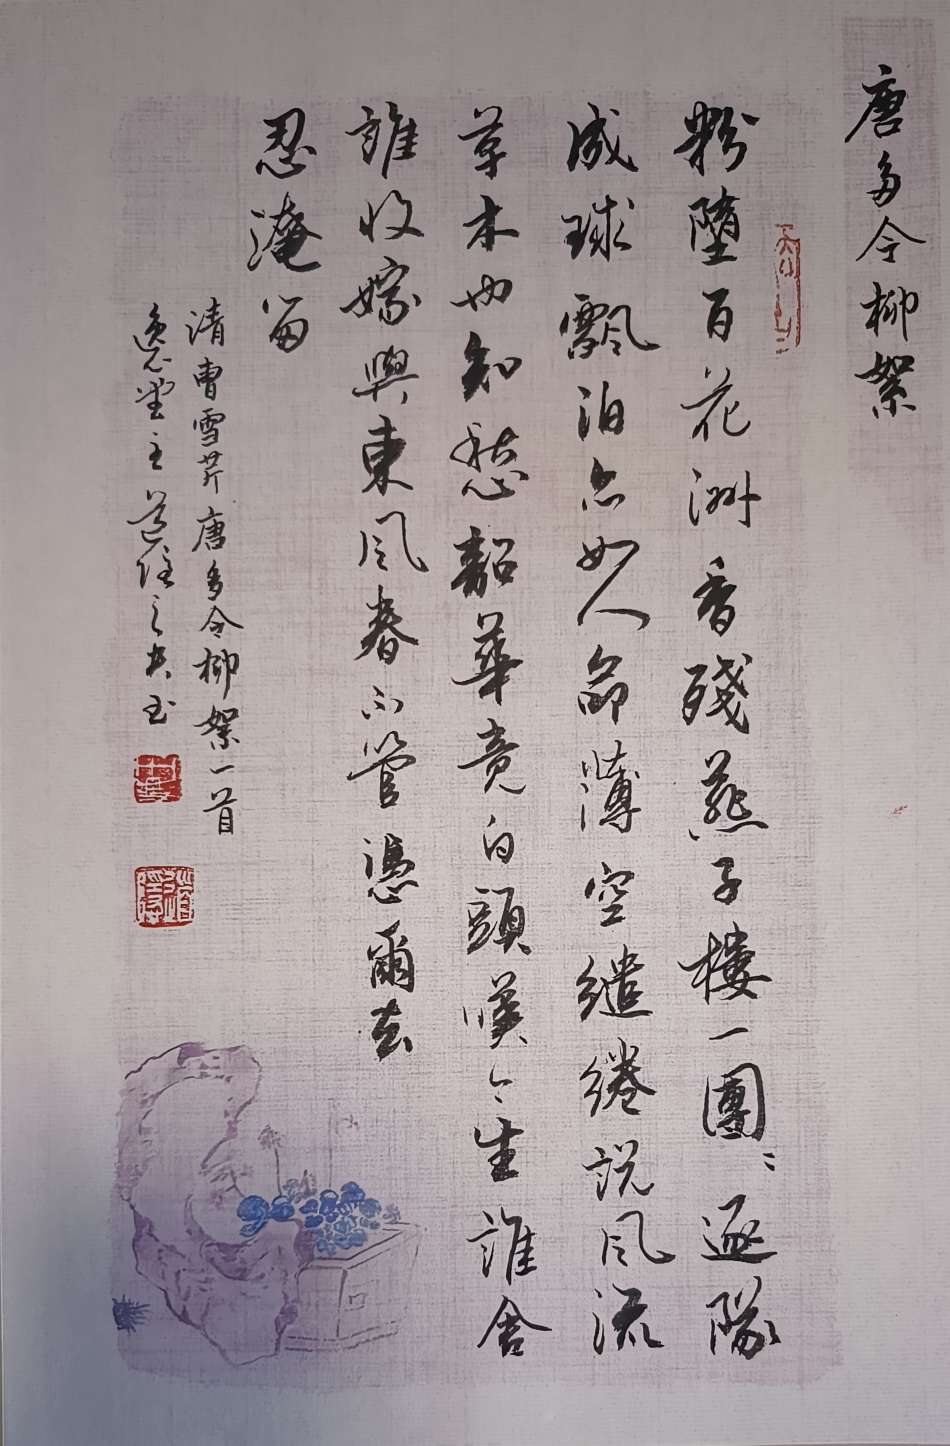 唐多令柳絮
粉墮百花洲香殘燕子樓一團〻逐隊
成球飄泊亦如人命薄空繾綣説風流
草木也知愁韶華竟白頭嘆今生誰舍
誰收嫁與東風春不管憑爾去
忍淹留
清曹雪芹唐多令柳絮一首
逸堂主